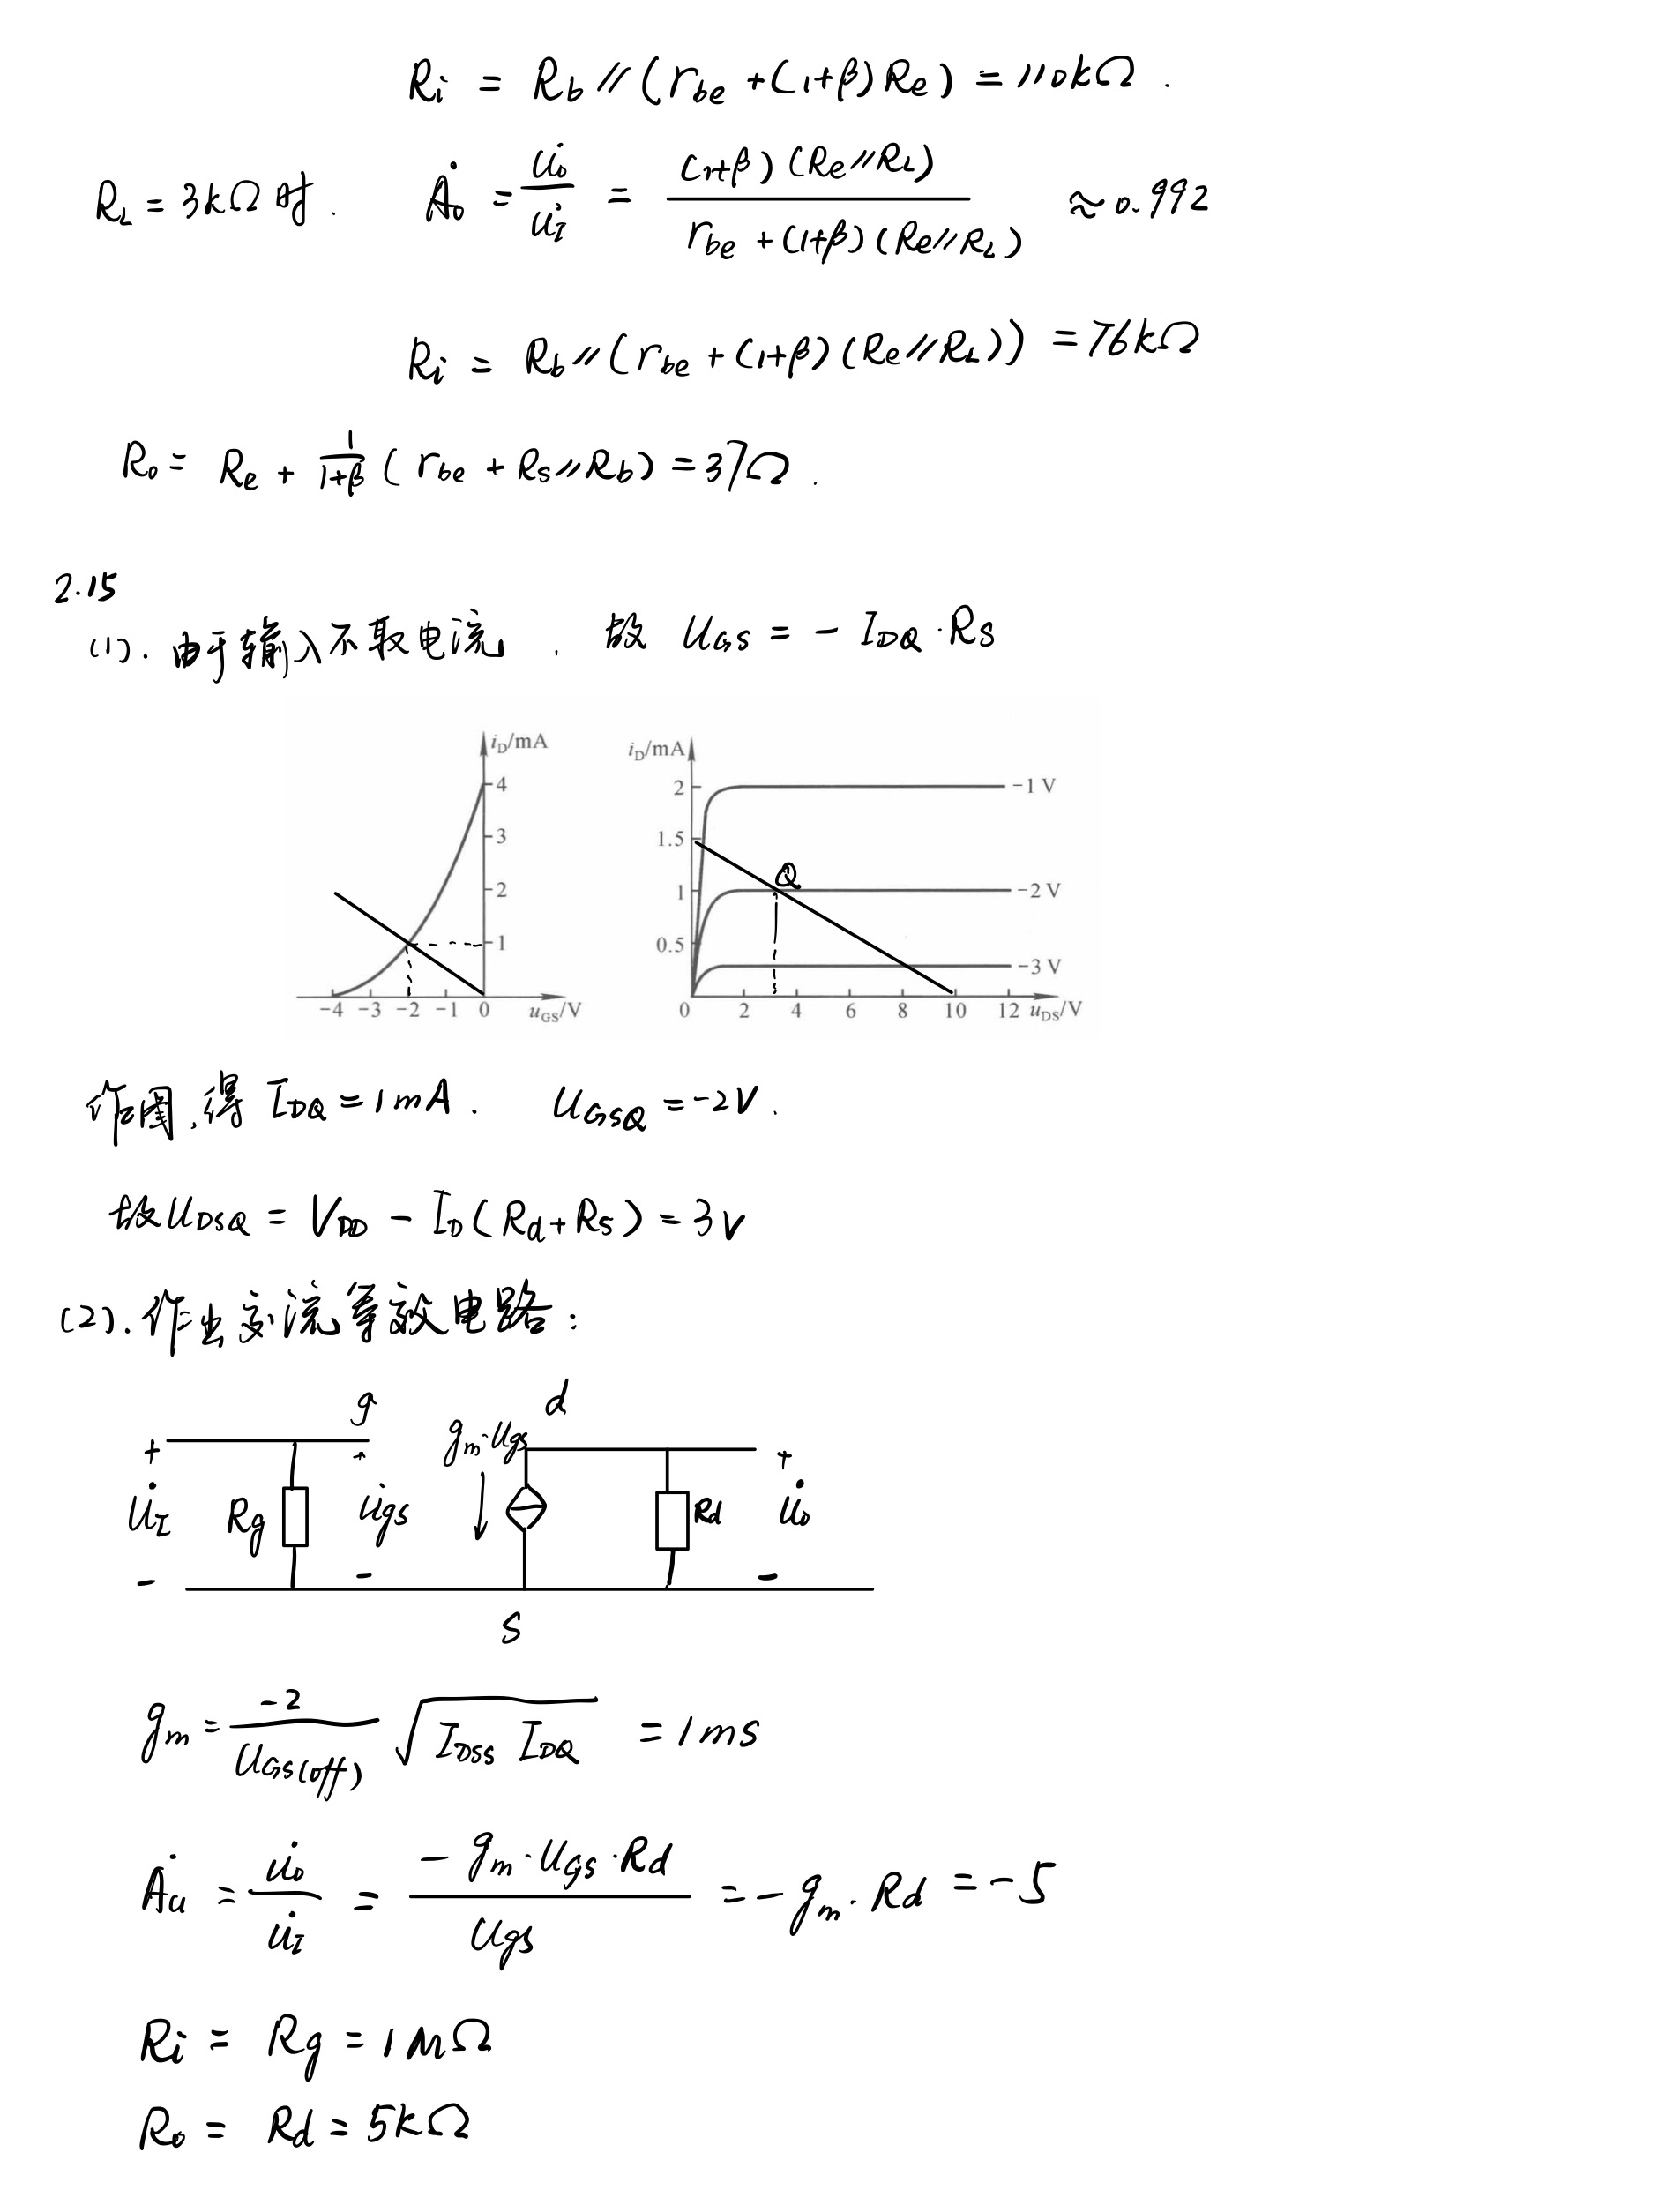 Ri = Rb // (rbe + (1+β) Re) = 110kΩ.
RL = 3kΩ 时. Ȧo = u̇o / u̇I = (1+β)(Re//RL) / rbe + (1+β)(Re//RL) ≈ 0.992
Ri = Rb // (rbe + (1+β)(Re//RL)) = 76kΩ
Ro = Re + 1/1+β (rbe + Rs//Rb) = 37Ω.
2.15
(1). 由于输入不取电流, 故 UGS = - IDQ · RS
iD/mA
4
3
2
1
-4 -3 -2 -1 0 uGS/V
iD/mA
2 -1 V
1.5
Q
1 -2 V
0.5
-3 V
0 2 4 6 8 10 12 uDS/V
作图,得 IDQ = 1mA. UGSQ = -2V.
故 UDSQ = VDD - ID (Rd + Rs) = 3V
(2). 作出交流等效电路:
g gm·Ugs d
+ + +
U̇I Rg U̇gs Rd U̇o
- - -
s
gm = -2 / UGS(off) √IDSS IDQ = 1ms
Ȧu = u̇o / u̇I = - gm · UGS · Rd / Ugs = - gm · Rd = -5
Ri = Rg = 1MΩ
Ro = Rd = 5kΩ